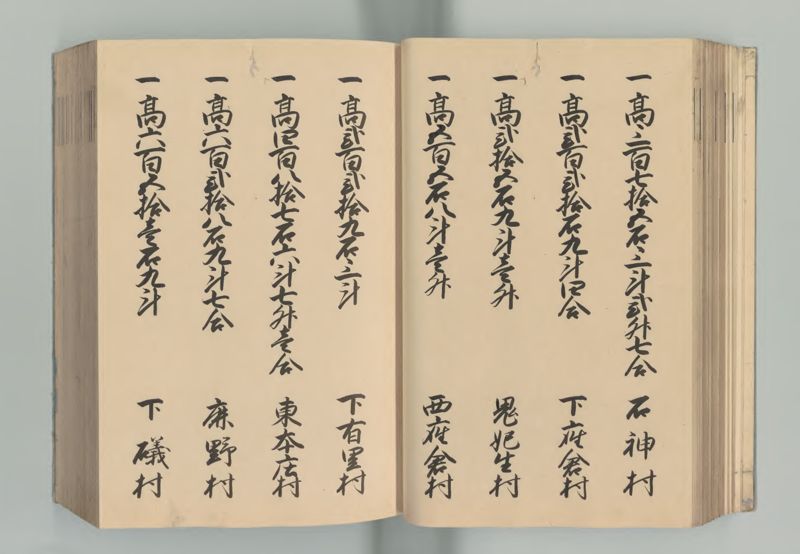 一髙三百七拾五石三斗弐升七合 石神村
一髙弐百弐拾石九斗四合 下座倉村
一髙弐拾五石九斗壱升 鬼妃生村
一髙五百五石八斗壱升 西座倉村
一髙弐百弐拾九石三斗 下有里村
一髙四百八拾七石六斗七升壱合 東本庄村
一髙六百弐拾八石九斗七合 麻野村
一髙六百五拾壱石九斗 下礒村